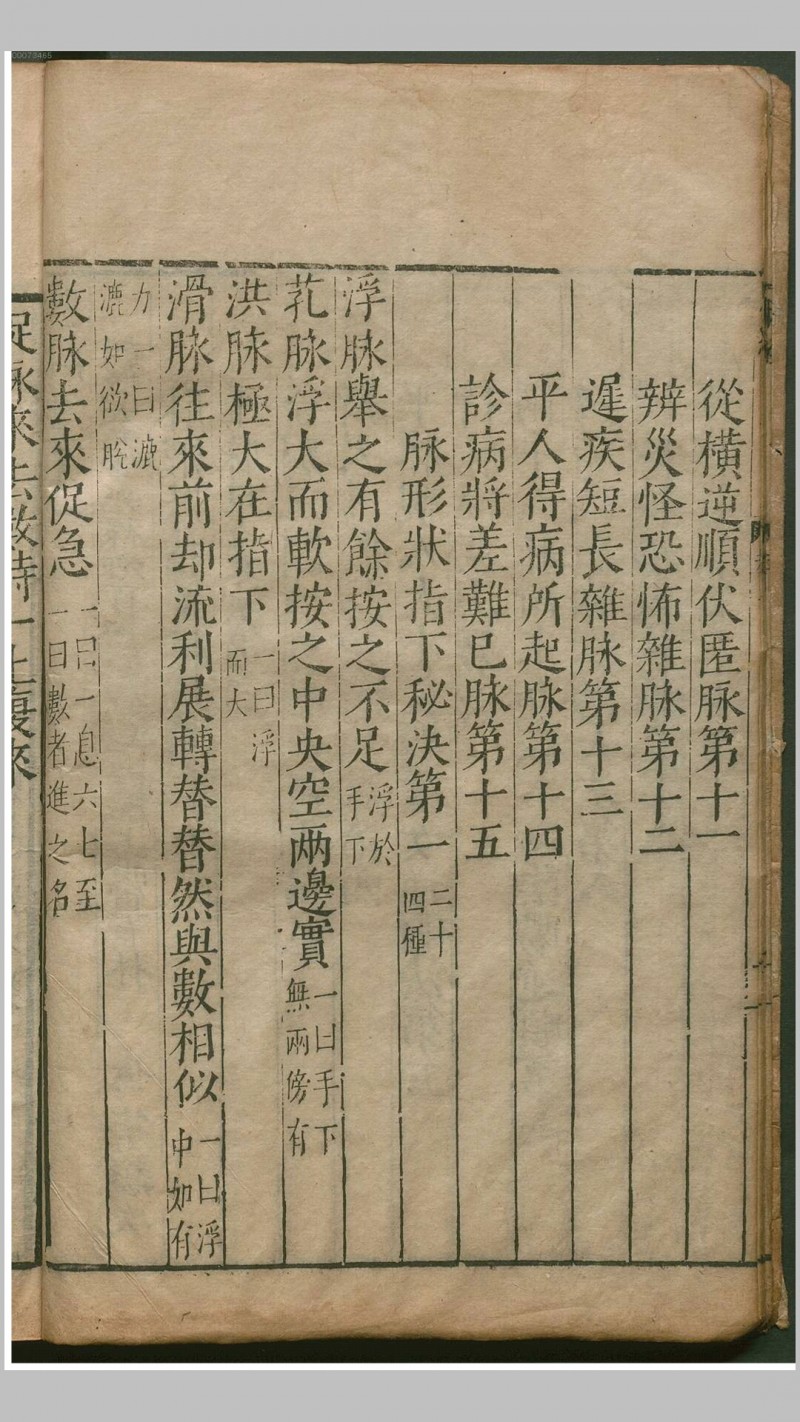 從橫逆順伏匿脉第十一
辨災怪恐怖雜脉第十二
遲疾短長雜脉第十三
平人得病所起脉第十四
診病將差難已脉第十五
脉形狀指下秘决第一 二十四種
浮脉舉之有餘按之不足 浮於手下
芤脉浮大而軟按之中央空兩邊實 一曰手下無兩傍有
洪脉極大在指下 一曰浮而大
滑脉往來前却流利展轉替替然與數相似 一曰浮中如有
力一曰漉漉如欲脫
數脉去來促急 一曰一息六七至一曰數者進之名
促脉來去數時一止復來